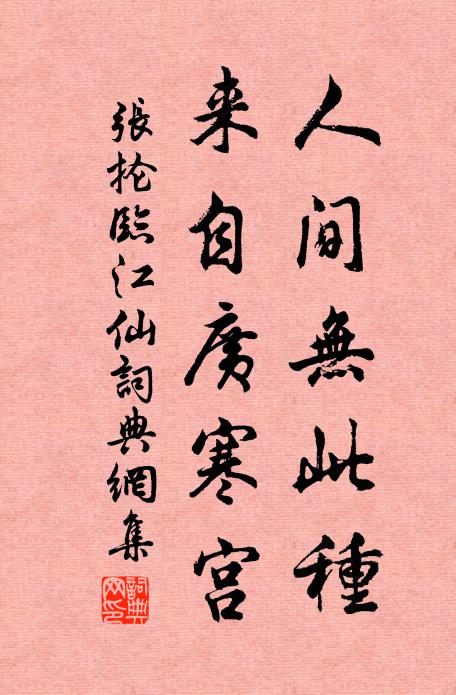 人間無此種
来自廣寒宫
張抡臨江仙詞典網集
詞典网印